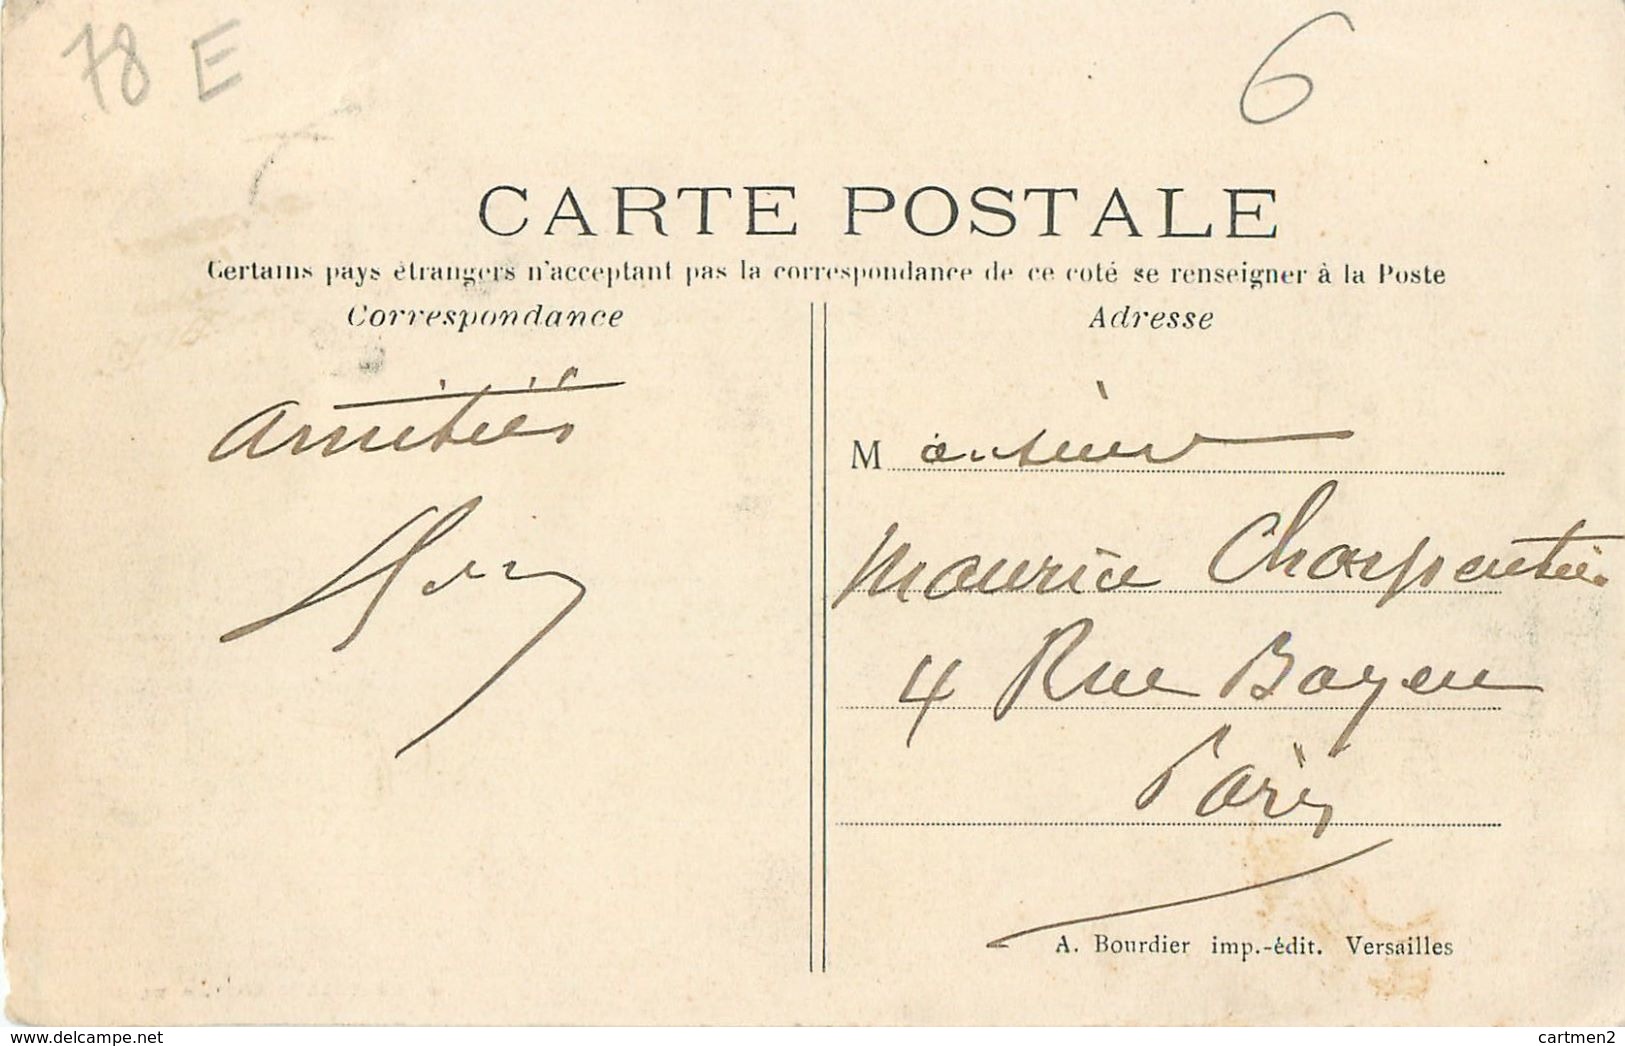 78 E
6
CARTE POSTALE
Certains pays étrangers n'acceptant pas la correspondance de ce coté se renseigner à la Poste
Correspondance
Amitiés
Adresse
Monsieur
Maurice Charpentier
4 Rue Bayen
Paris
A. Bourdier imp.-édit. Versailles
www.delcampe.net
cartmen2